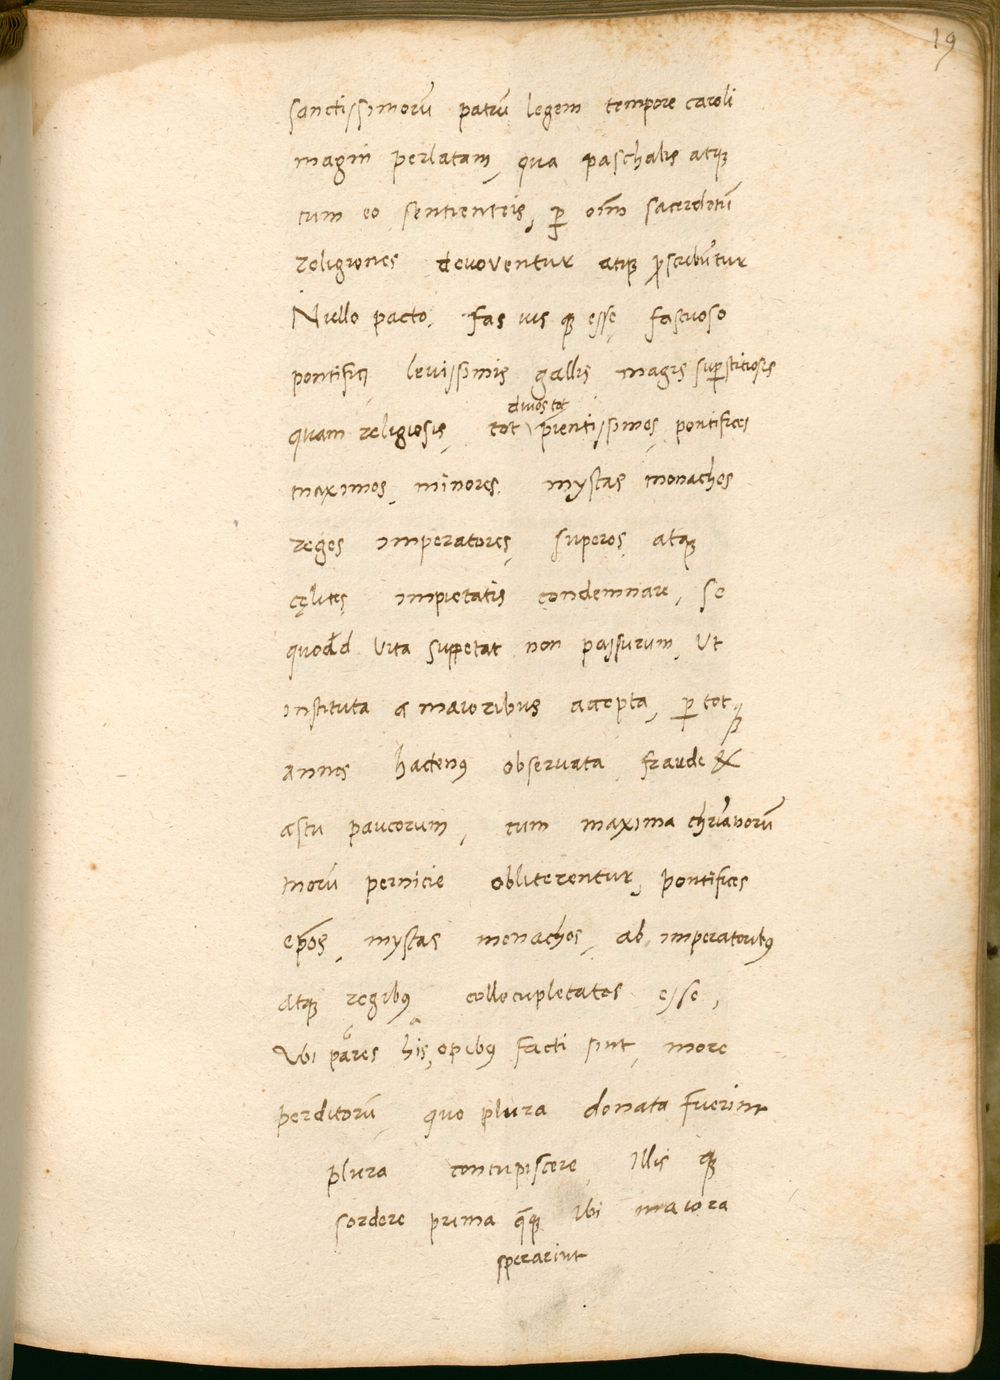 19
sanctissimorũ patrũ legem tempore caroli
magni perlatam, qua paschalis atqꝫ
cum eo sentienteis, ꝑ oĩm sacerdotũ
religiones devoventur atqꝫ ꝓscribũtur
Nullo pacto, fas ius qꝫ esse, fastuoso
pontifici levissimis gallis magis suꝑstitiosis
quam religiosis, tot pientissimos, pontifices
divos tot
maximos, minores, mystas monachos
reges imperatores, superos, atqꝫ
cęlites, impietatis condemnare, se
vita suppetat non passurum, Ut
instituta a maioribus accepta, ꝑ tot qꝫ
annos hactenꝰ observata fraude &
astu paucorum, cum maxima chrĩanorũ
morũ pernicie obliterentur, pontifices
ep̃os, mystas monachos, ab imperatoribꝰ
atqꝫ regibꝰ collocupletatos esse,
Ubi pares his, opibꝰ facti sint, more
perditorũ, quo plura donata fuerint
plura concupiscere, illis qꝫ
sordere prima q̃qꝫ ibi maiora
sperarint